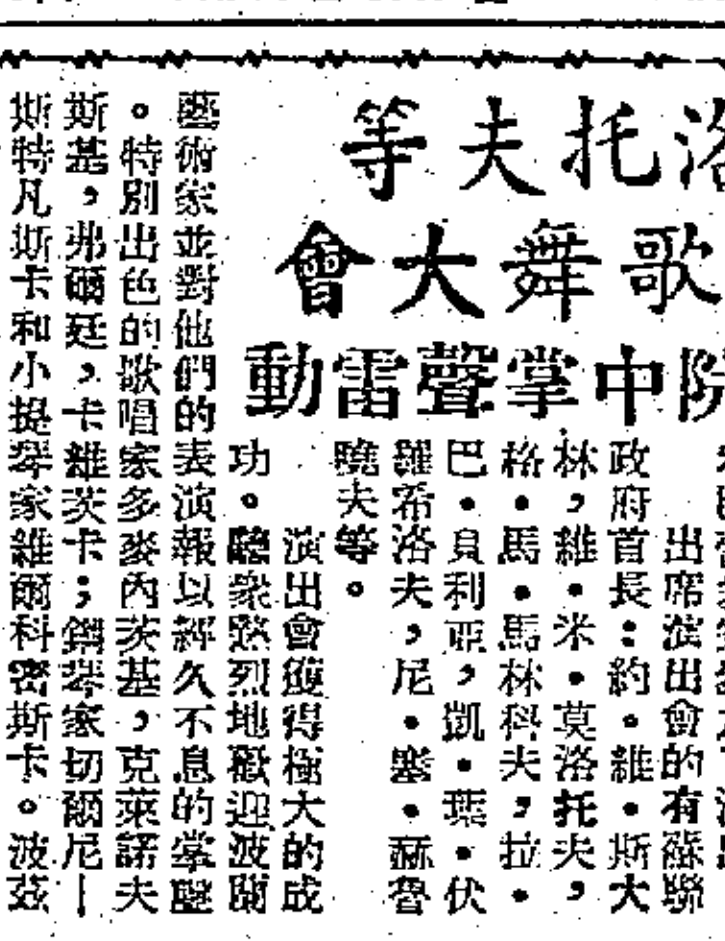 洛托夫等
歌舞大會
院中掌聲雷動
出席演出會的有蘇聯
政府首長：約·維·斯大
林，維·米·莫洛托夫，
格·馬·馬林科夫，拉·
巴·貝利亞，凱·葉·伏
羅希洛夫，尼·塞·赫魯
曉夫等。
演出會獲得極大的成
功。聽衆熱烈地歡迎波蘭
藝術家並對他們的表演報以經久不息的掌聲
。特別出色的歌唱家多麥內茨基，克萊諾夫
斯基，弗爾廷，卡維茨卡；鋼琴家切爾尼—
斯特凡斯卡和小提琴家維爾科密斯卡。波茲